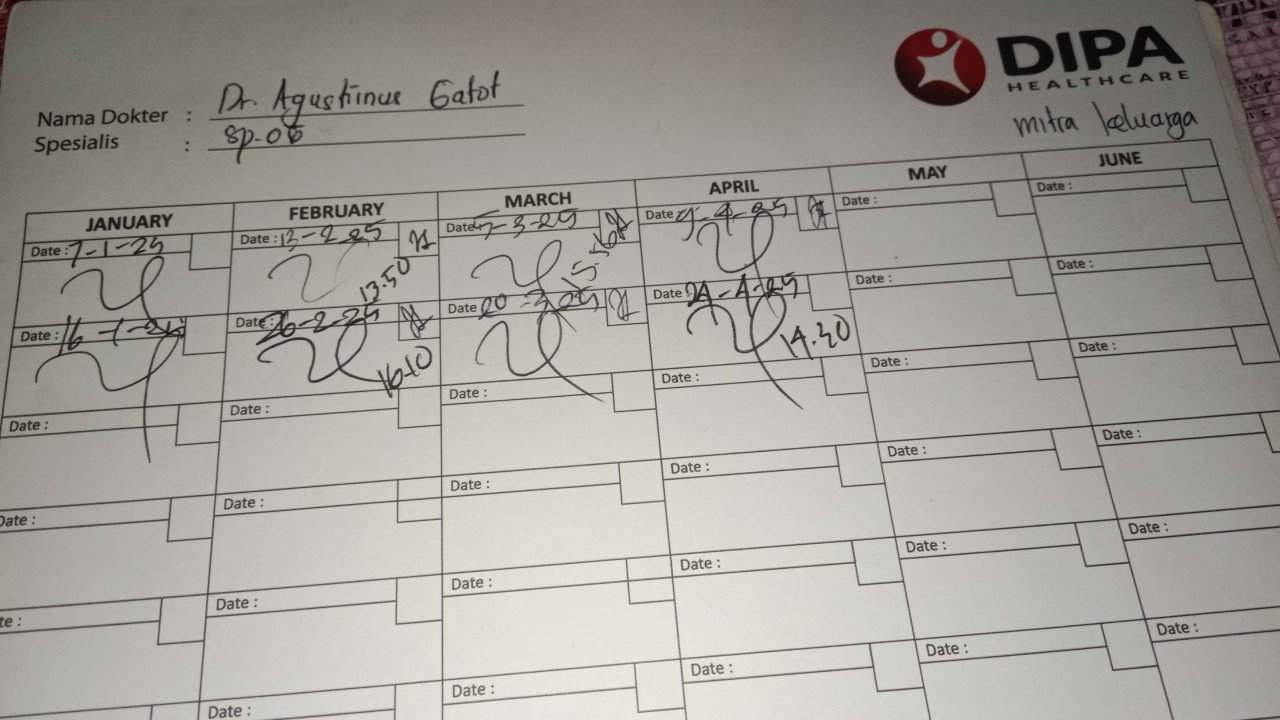 DIPA
HEALTHCARE
mitra keluarga
Nama Dokter : Dr. Agustinus Gatot
Spesialis : Sp.OG
JANUARY FEBRUARY MARCH APRIL MAY JUNE
Date : 7-1-25 Date : 13-2-25 Date -3-25 Date -4-25 Date : Date :
13.50 15.56
Date : 16-1-25 Date : 26-2-25 Date 20-3-25 Date 24-4-25 Date : Date :
16.10 14.30
Date : Date : Date : Date : Date : Date :
Date : Date : Date : Date : Date : Date :
te : Date : Date : Date : Date : Date :
Date : Date : Date : Date : Date :